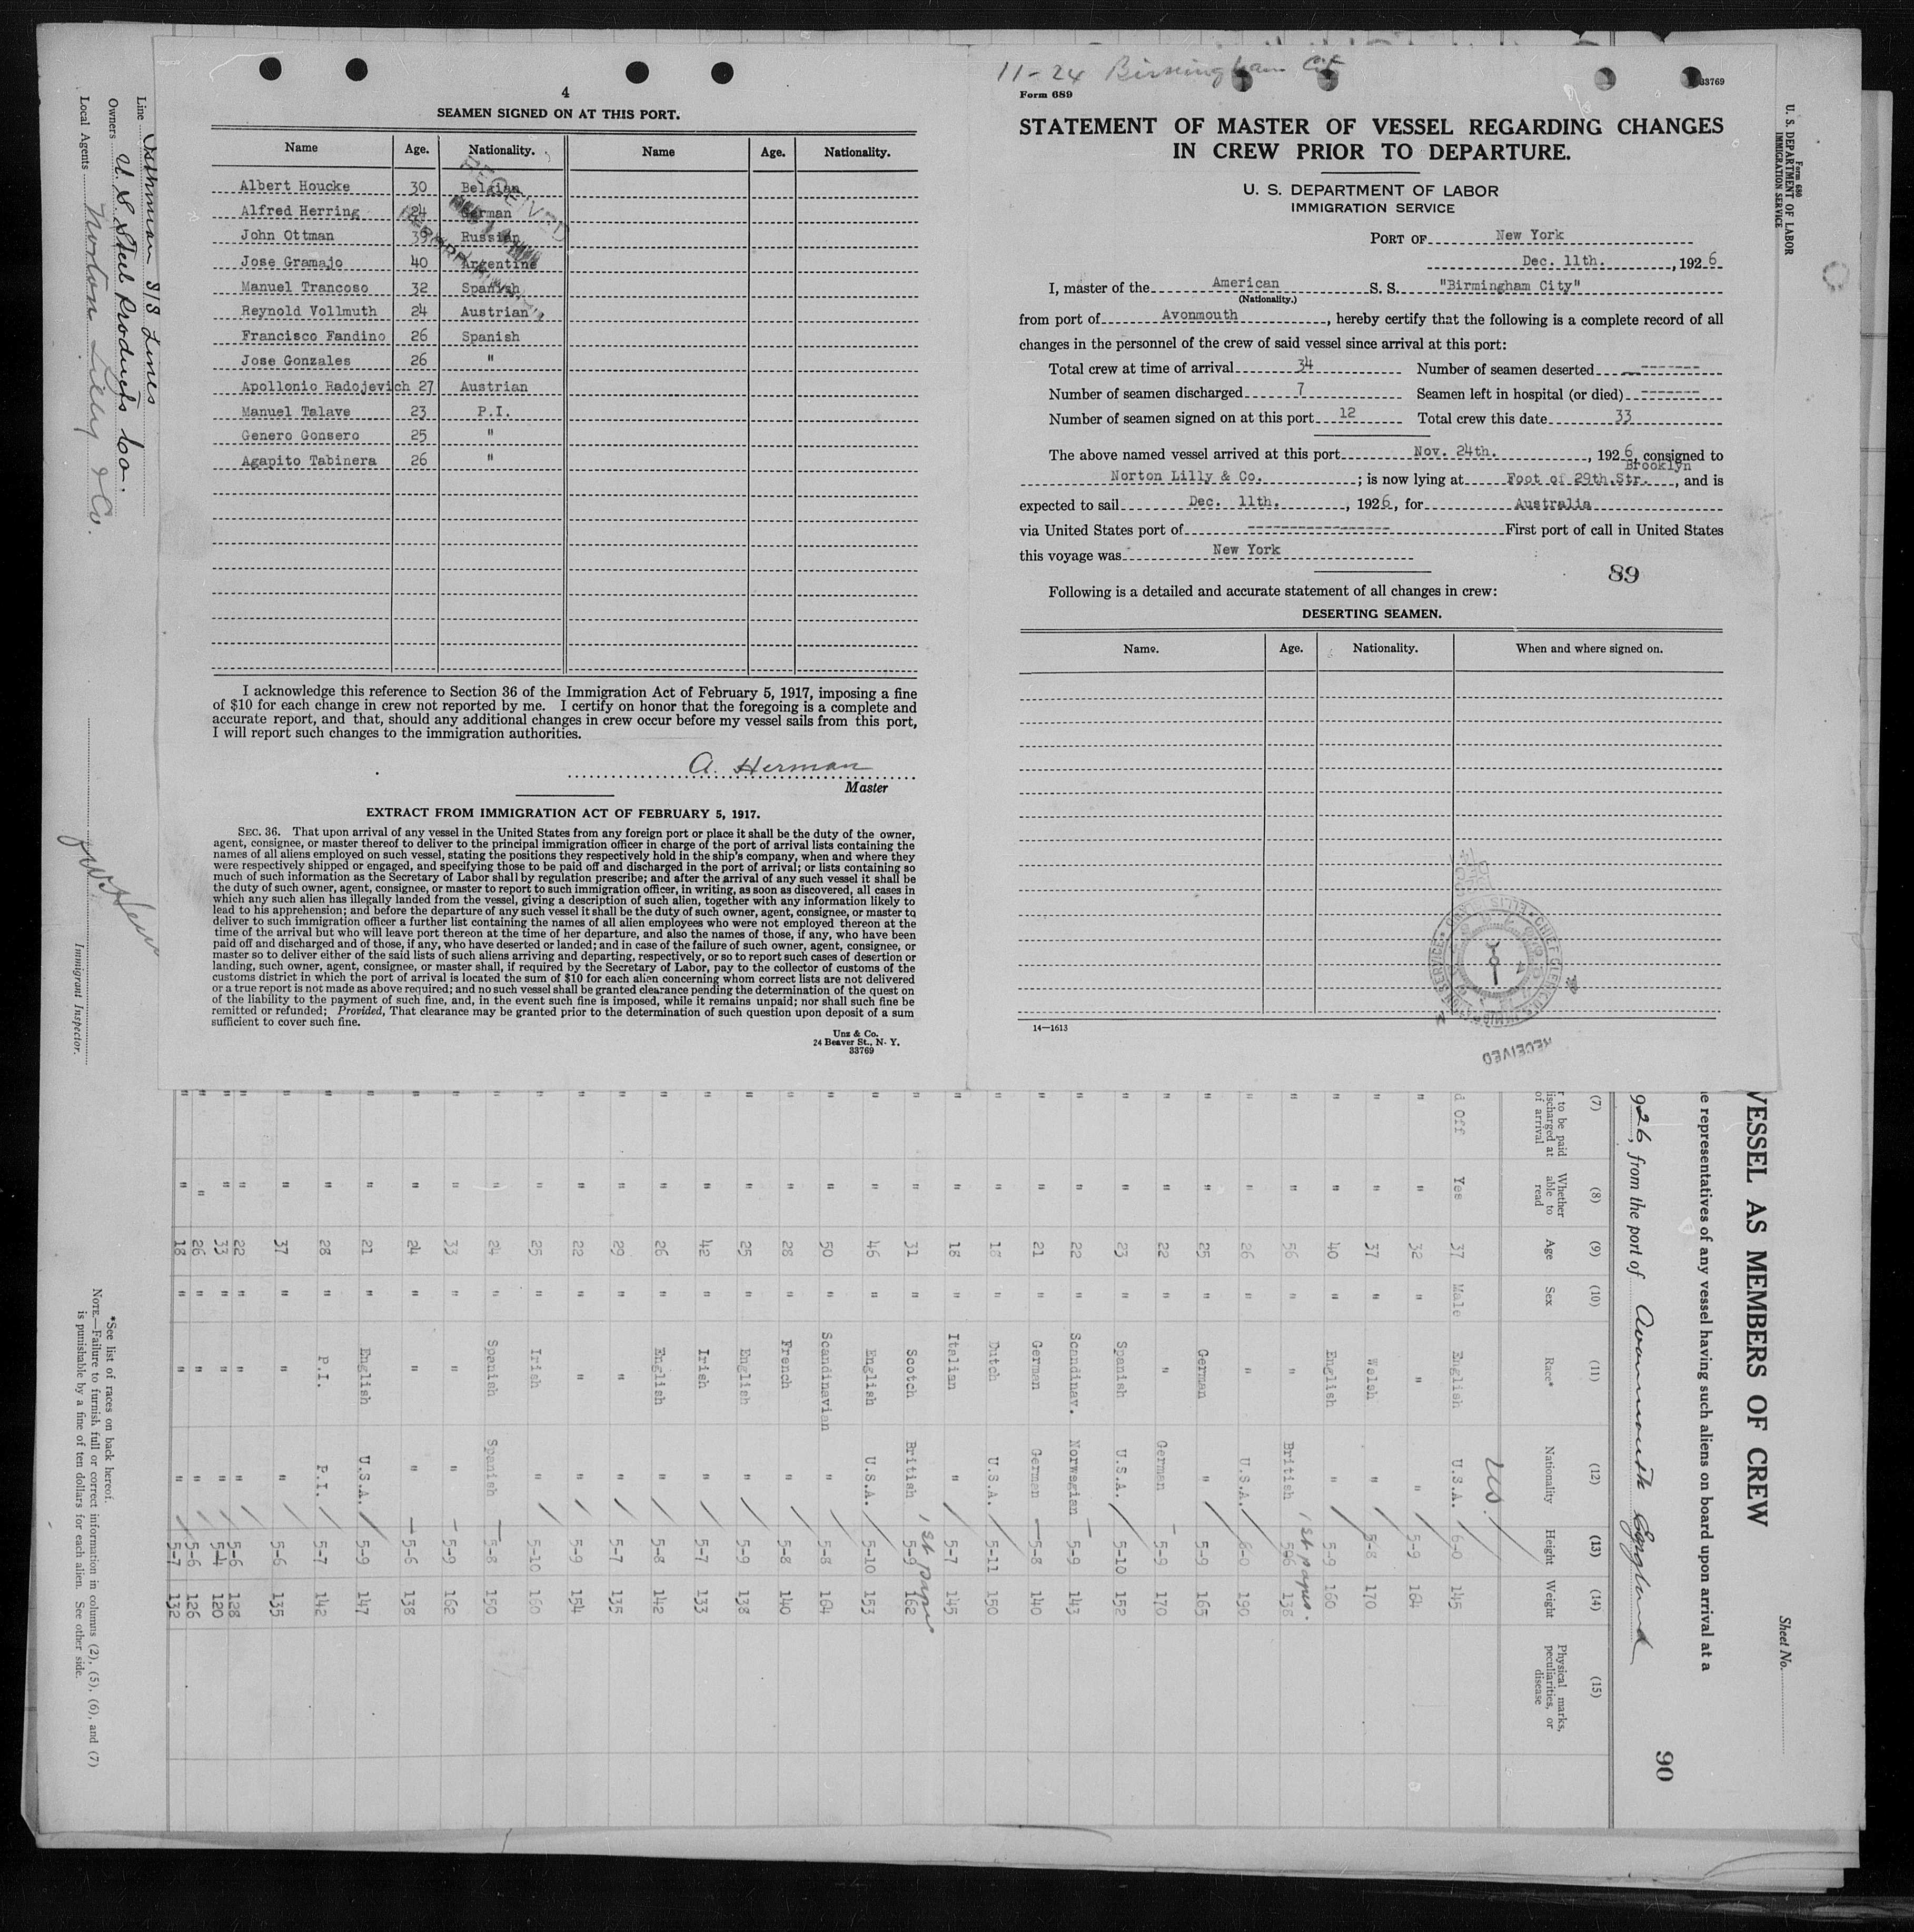 4
SEAMEN SIGNED ON AT THIS PORT.
Name Age. Nationality. Name Age. Nationality.
Albert Houcke 30 Belgian
Alfred Herring 24 German
John Ottman 39 Russian
Jose Gramajo 40 Argentine
Manuel Trancoso 32 Spanish
Reynold Vollmuth 24 Austrian
Francisco Fandino 26 Spanish
Jose Gonzales 26 "
Apollonio Radojevich 27 Austrian
Manuel Talave 23 P.I.
Genero Gonsero 25 "
Agapito Tabinera 26 "
RECEIVED
I acknowledge this reference to Section 36 of the Immigration Act of February 5, 1917, imposing a fine
of $10 for each change in crew not reported by me. I certify on honor that the foregoing is a complete and
accurate report, and that, should any additional changes in crew occur before my vessel sails from this port,
I will report such changes to the immigration authorities.
A. Herman
Master
EXTRACT FROM IMMIGRATION ACT OF FEBRUARY 5, 1917.
SEC. 36. That upon arrival of any vessel in the United States from any foreign port or place it shall be the duty of the owner,
agent, consignee, or master thereof to deliver to the principal immigration officer in charge of the port of arrival lists containing the
names of all aliens employed on such vessel, stating the positions they respectively hold in the ship's company, when and where they
were respectively shipped or engaged, and specifying those to be paid off and discharged in the port of arrival; or lists containing so
much of such information as the Secretary of Labor shall by regulation prescribe; and after the arrival of any such vessel it shall be
the duty of such owner, agent, consignee, or master to report to such immigration officer, in writing, as soon as discovered, all cases in
which any such alien has illegally landed from the vessel, giving a description of such alien, together with any information likely to
lead to his apprehension; and before the departure of any such vessel it shall be the duty of such owner, agent, consignee, or master to
deliver to such immigration officer a further list containing the names of all alien employees who were not employed thereon at the
time of the arrival but who will leave port thereon at the time of her departure, and also the names of those, if any, who have been
paid off and discharged and of those, if any, who have deserted or landed; and in case of the failure of such owner, agent, consignee, or
master so to deliver either of the said lists of such aliens arriving and departing, respectively, or so to report such cases of desertion or
landing, such owner, agent, consignee, or master shall, if required by the Secretary of Labor, pay to the collector of customs of the
customs district in which the port of arrival is located the sum of $10 for each alien concerning whom correct lists are not delivered
or a true report is not made as above required; and no such vessel shall be granted clearance pending the determination of the quest on
of the liability to the payment of such fine, and, in the event such fine is imposed, while it remains unpaid; nor shall such fine be
remitted or refunded; Provided, That clearance may be granted prior to the determination of such question upon deposit of a sum
sufficient to cover such fine.
Unz & Co.
24 Beaver St., N. Y.
33769
11-24 Birmingham City
Form 689
33769
STATEMENT OF MASTER OF VESSEL REGARDING CHANGES
IN CREW PRIOR TO DEPARTURE.
U. S. DEPARTMENT OF LABOR
IMMIGRATION SERVICE
PORT OF New York
Dec. 11th., 1926
I, master of the American S. S. "Birmingham City"
(Nationality.)
from port of Avonmouth, hereby certify that the following is a complete record of all
changes in the personnel of the crew of said vessel since arrival at this port:
Total crew at time of arrival 34 Number of seamen deserted -------
Number of seamen discharged 7 Seamen left in hospital (or died) -------
Number of seamen signed on at this port 12 Total crew this date 33
The above named vessel arrived at this port Nov. 24th., 1926, consigned to
Brooklyn
Norton Lilly & Co.; is now lying at Foot of 29th.Str., and is
expected to sail Dec. 11th., 1926, for Australia
via United States port of ----------------- First port of call in United States
this voyage was New York
89
Following is a detailed and accurate statement of all changes in crew:
DESERTING SEAMEN.
Name. Age. Nationality. When and where signed on.
14—1613
RECEIVED
Line Isthmian S/S Lines
Owners U.S Steel Products Co.
Local Agents Norton Lilly & Co.
Immigrant Inspector.
Form 680
U. S. DEPARTMENT OF LABOR
IMMIGRATION SERVICE
Sheet No.
VESSEL AS MEMBERS OF CREW
e representatives of any vessel having such aliens on board upon arrival at a
926, from the port of Avonmouth England
90
(7) (8) (9) (10) (11) (12) (13) (14) (15)
r to be paid ischarged at of arrival Whether able to read Age Sex Race* Nationality Height Weight Physical marks, peculiarities, or disease
US.
d Off Yes 37 Male English U.S.A. 6-0 145
" " 32 " " " 5-9 164
" " 37 " Welsh " 5-8 170
" " 40 " English " 5-9 160
" " 56 " " British 1st papers. 5-6 138
" " 26 " " U.S.A. 6-0 190
" " 25 " German " 5-9 165
" " 22 " " German 5-9 170
" " 23 " Spanish U.S.A. 5-10 152
" " 22 " Scandinav. Norwegian 5-9 143
" " 21 " German German 5-8 140
" " 18 " Dutch U.S.A. 5-11 150
" " 18 " Italian " 5-7 145
" " 31 " Scotch British 1st paper 5-9 162
" " 46 " English U.S.A. 5-10 153
" " 50 " Scandinavian " 5-8 164
" " 28 " French " 5-8 140
" " 25 " English " 5-9 138
" " 42 " Irish " 5-7 133
" " 26 " English " 5-8 142
" " 29 " " " 5-7 135
" " 22 " " " 5-9 154
" " 25 " Irish " 5-10 160
" " 24 " Spanish Spanish 5-8 150
" " 33 " " " 5-9 162
" " 24 " " " 5-6 138
" " 21 " English U.S.A. 5-9 147
" " 28 " P.I. P.I. 5-7 142
" " 37 " " " 5-6 135
" " 22 " " " 5-6 128
" " 33 " " " 5-4 120
" " 26 " " " 5-6 126
" " 18 " " " 5-7 132
*See list of races on back hereof.
NOTE.—Failure to furnish full or correct information in columns (2), (5), (6), and (7)
is punishable by a fine of ten dollars for each alien. See other side.